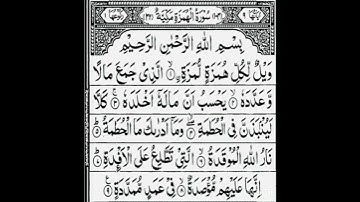 سُوْرَةُ الْهُمَزَةِ مَكِّيَّةٌ
بِسْمِ اللّٰهِ الرَّحْمٰنِ الرَّحِيْمِ
وَيْلٌ لِّكُلِّ هُمَزَةٍ لُّمَزَةٍ ۙ﴿۱﴾ الَّذِيْ جَمَعَ مَالًا
وَّعَدَّدَهٗ ۙ﴿۲﴾ يَحْسَبُ اَنَّ مَالَهٗۤ اَخْلَدَهٗ ۚ﴿۳﴾ كَلَّا
لَيُنْۢبَذَنَّ فِي الْحُطَمَةِ ۖ﴿۴﴾ وَمَاۤ اَدْرٰىكَ مَا الْحُطَمَةُ ؕ﴿۵﴾
نَارُ اللّٰهِ الْمُوْقَدَةُ ۙ﴿۶﴾ الَّتِيْ تَطَّلِعُ عَلَى الْاَفْـِٕدَةِ ؕ﴿۷﴾
اِنَّهَا عَلَيْهِمْ مُّؤْصَدَةٌ ۙ﴿۸﴾ فِيْ عَمَدٍ مُّمَدَّدَةٍ ﴿۹﴾